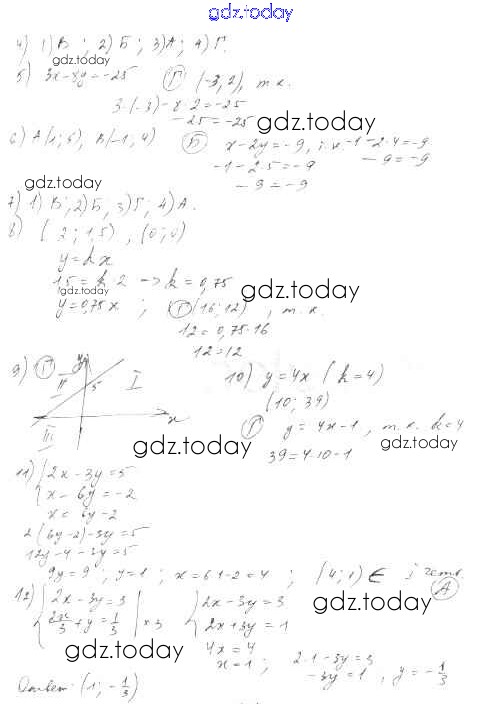 gdz.today
4) 1) В; 2) Б; 3) А; 4) Г.
gdz.today
5) 3x-8y=-25 Г (-3; 2), т.к.
3·(-3)-8·2=-25
-25=-25
gdz.today
6) А(1; 5), В(-1; 4) Б x-2y=-9, т.к. -1-2·4=-9
-1-2·5=-9 -9=-9
-9=-9
gdz.today
7) 1) В; 2) Б, 3) Г; 4) А.
8) (2; 1,5), (0; 0)
y=kx
1,5=k·2 -> k=0,75
gdz.today
gdz.today
y=0,75x; Г (16; 12), т.к.
12=0,75·16
12=12
9) Г
y
II 5 I
x
III
10) y=4x (k=4)
(10; 39)
Г y=4x-1, т.к. k=4
39=4·10-1
gdz.today
gdz.today
11) 2x-3y=5
x-6y=-2
x=6y-2
2(6y-2)-3y=5
12y-4-3y=5
gdz.today
9y=9; y=1; x=6·1-2=4; (4; 1) ∈ четв.
А
12) 2x-3y=3 2x-3y=3
2x/3+y=1/3 | ×3 2x+3y=1
gdz.today
gdz.today
4x=4
x=1; 2·1-3y=3
-3y=1, y=-1/3
Ответ: (1; -1/3)